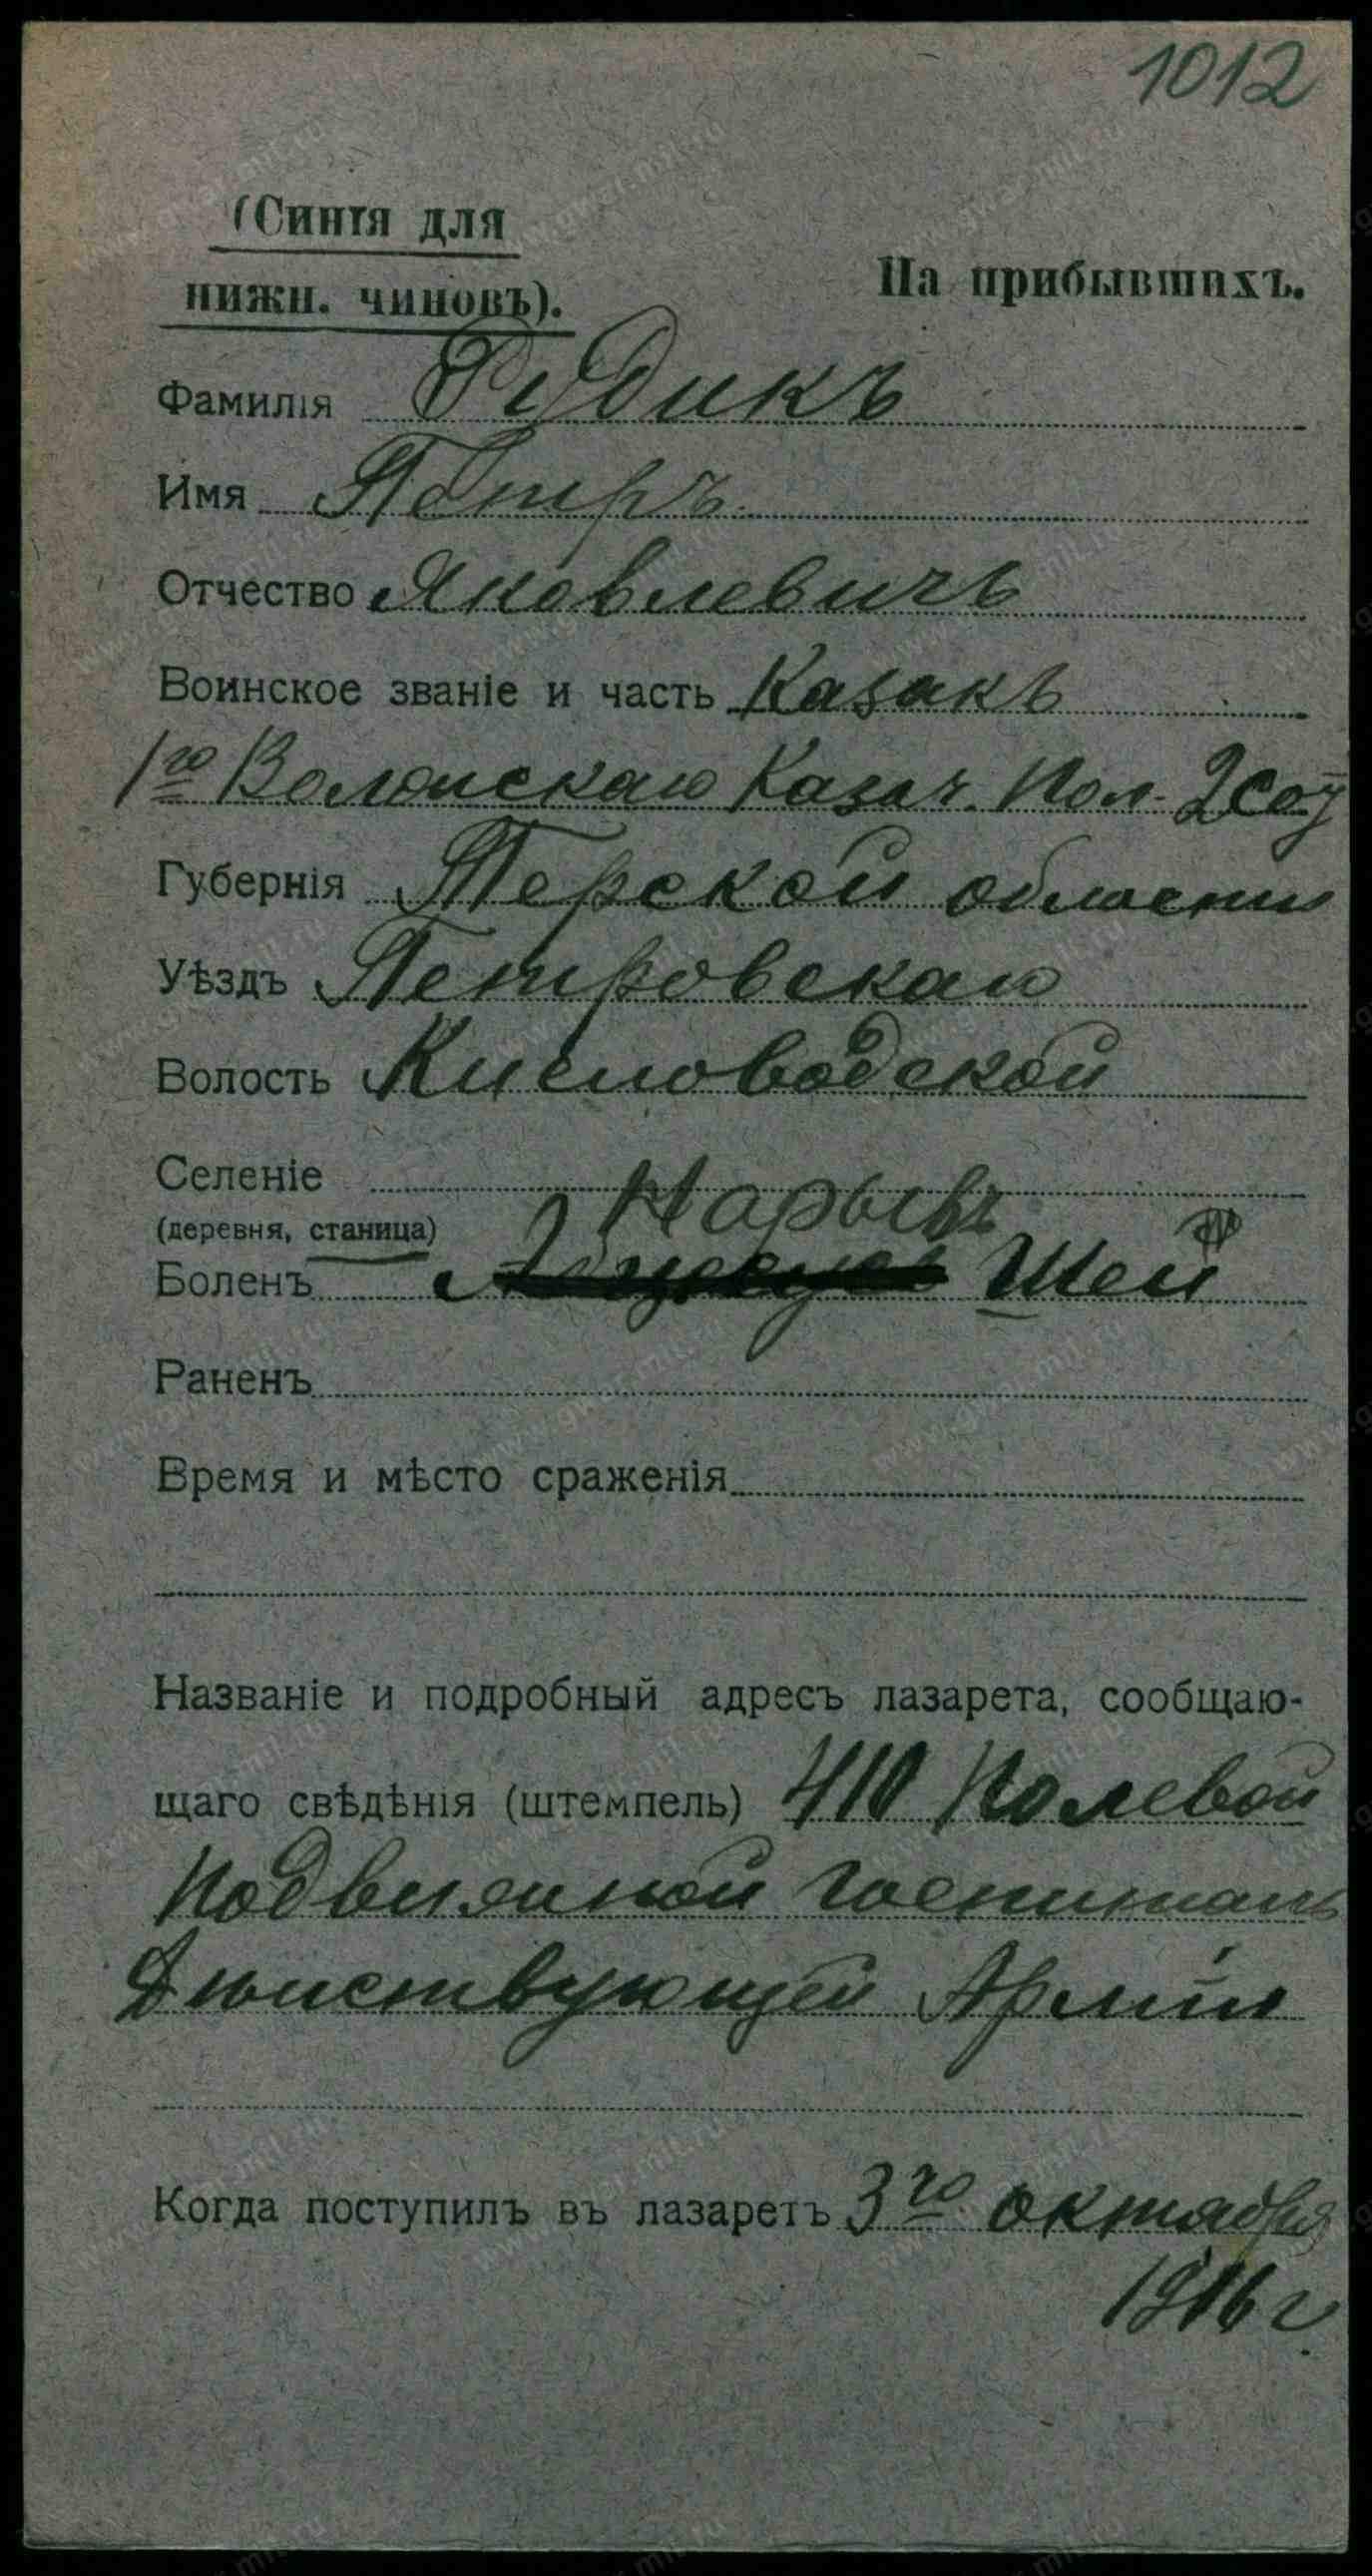 1012
(Синія для
нижн. чиновъ).
На прибывшихъ.
Фамилія Рудикъ
Имя Петръ
Отчество Яковлевичъ
Воинское званіе и часть Казакъ
1го Волжскаго Казач. Пол. 2 Сот
Губернія Терской области
Уѣздъ Петровскаго
Волость Кисловодской
Селеніе
(деревня, станица)
Нарывъ
Боленъ Шеи
Раненъ
Время и мѣсто сраженія
Названіе и подробный адресъ лазарета, сообщаю-
щаго свѣдѣнія (штемпель) 410 Полевой
Подвижной госпиталь
Дѣйствующей Арміи
Когда поступилъ въ лазаретъ 3го октября
1916 г.